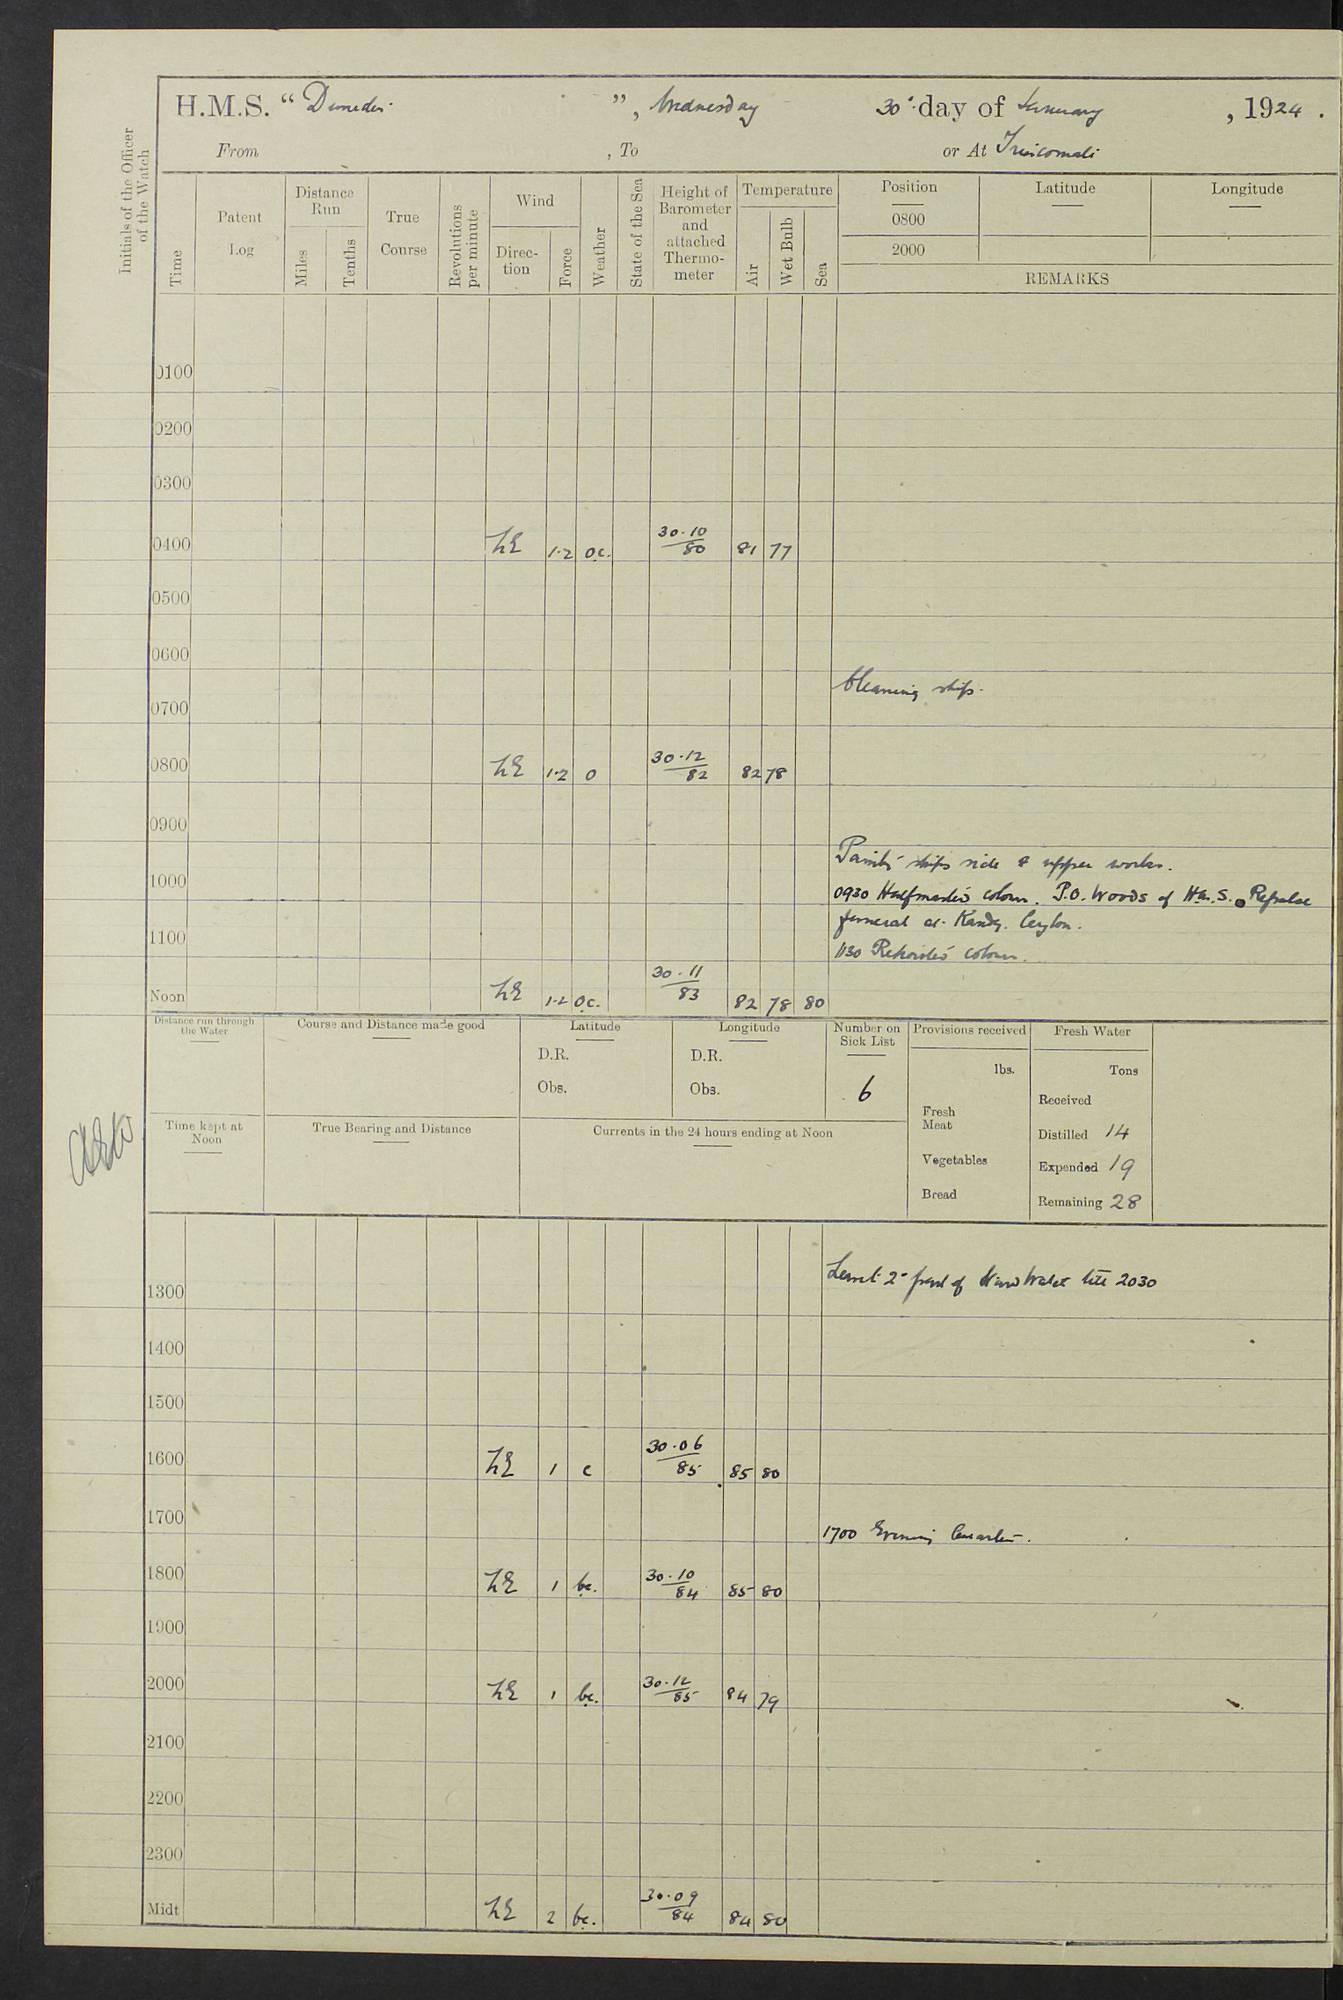 H.M.S. “ Dunedin ”, Wednesday 30th day of January, 1924.
From , To or At Trincomali
Initials of the Officer of the Watch
Time
Patent Log
Distance Run
Miles
Tenths
True Course
Revolutions per minute
Wind
Direction
Force
Weather
State of the Sea
Height of Barometer and attached Thermometer
Temperature
Air
Wet Bulb
Sea
Position
0800
2000
Latitude
Longitude
REMARKS
0100
0200
0300
0400 NE 1·2 oc. 30·10/80 81 77
0500
0600
Cleaning ship.
0700
0800 NE 1·2 o 30·12/82 82 78
0900
Paintg ships side & upper works.
1000
0930 Halfmasted colours. P.O. Woods of H.M.S. Repulse
funeral at Kandy. Ceylon.
1100
1130 Rehoisted colours.
Noon NE 1·2 oc. 30·11/83 82 78 80
Distance run through the Water
Course and Distance made good
Latitude
D.R.
Obs.
Longitude
D.R.
Obs.
Number on Sick List
6
Provisions received
lbs.
Fresh Meat
Vegetables
Bread
Fresh Water
Tons
Received
Distilled 14
Expended 19
Remaining 28
Time kept at Noon
True Bearing and Distance
Currents in the 24 hours ending at Noon
Leave to 2nd part of Stard Watch till 2030
1300
1400
1500
1600 NE 1 c 30·06/85 85 80
1700
1700 Evening Quarters.
1800 NE 1 bc. 30·10/84 85 80
1900
2000 NE 1 bc. 30·12/85 84 79
2100
2200
2300
Midt NE 2 bc. 30·09/84 84 80